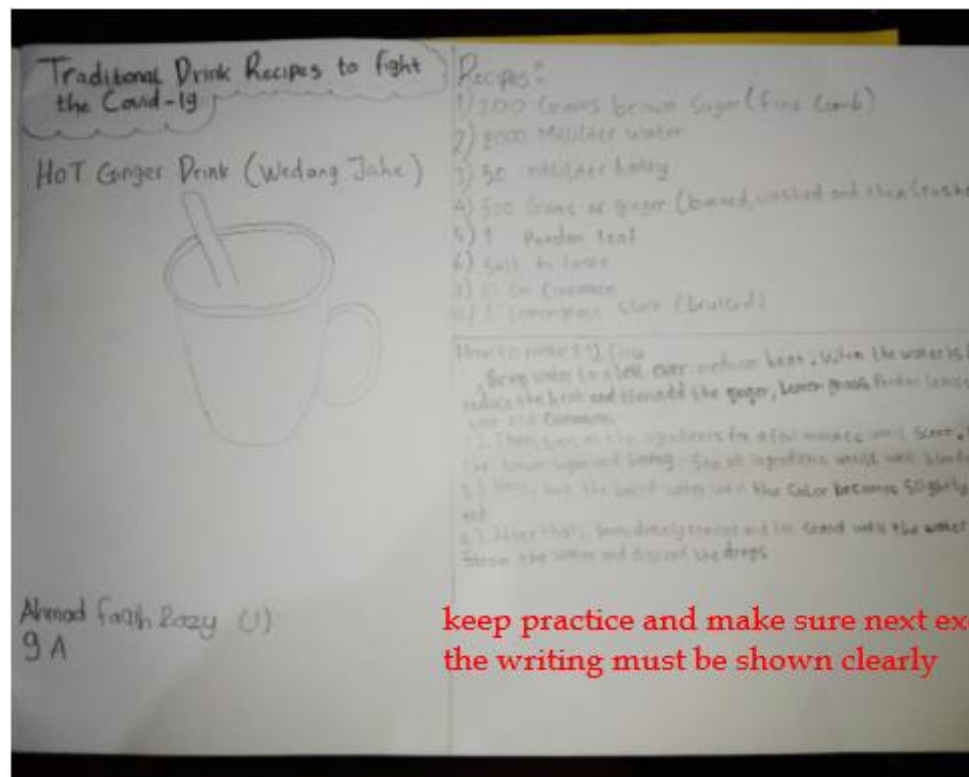 Traditional Drink Recipes to fight
the Covid-19
HOT Ginger Drink (Wedang Jahe)
Ahmad Faqih Rozy (1)
9 A
Recipes:
1) 200 Grams brown Sugar (fine Comb)
2) 2000 Milliliter Water
3) 50 milliliter honey
4) 500 Grams of ginger (burned, washed and then Crushe
5) 1 Pandan leaf
6) Salt to taste
10 Cm
1 Lemongrass Stalk (bruised)
How to make
Bring water to a boil over medium heat. When the water is
reduce the heat and then add the ginger, Lemon grass Pandan
and
Then, the ingredients for a few minutes until Scent.
the brown Sugar and honey. ingredients until well
the water until the Color becomes Slightly
red
After that, immediately remove and let Stand until the water
Strain the water and discard the dregs
keep practice and make sure next ex
the writing must be shown clearly